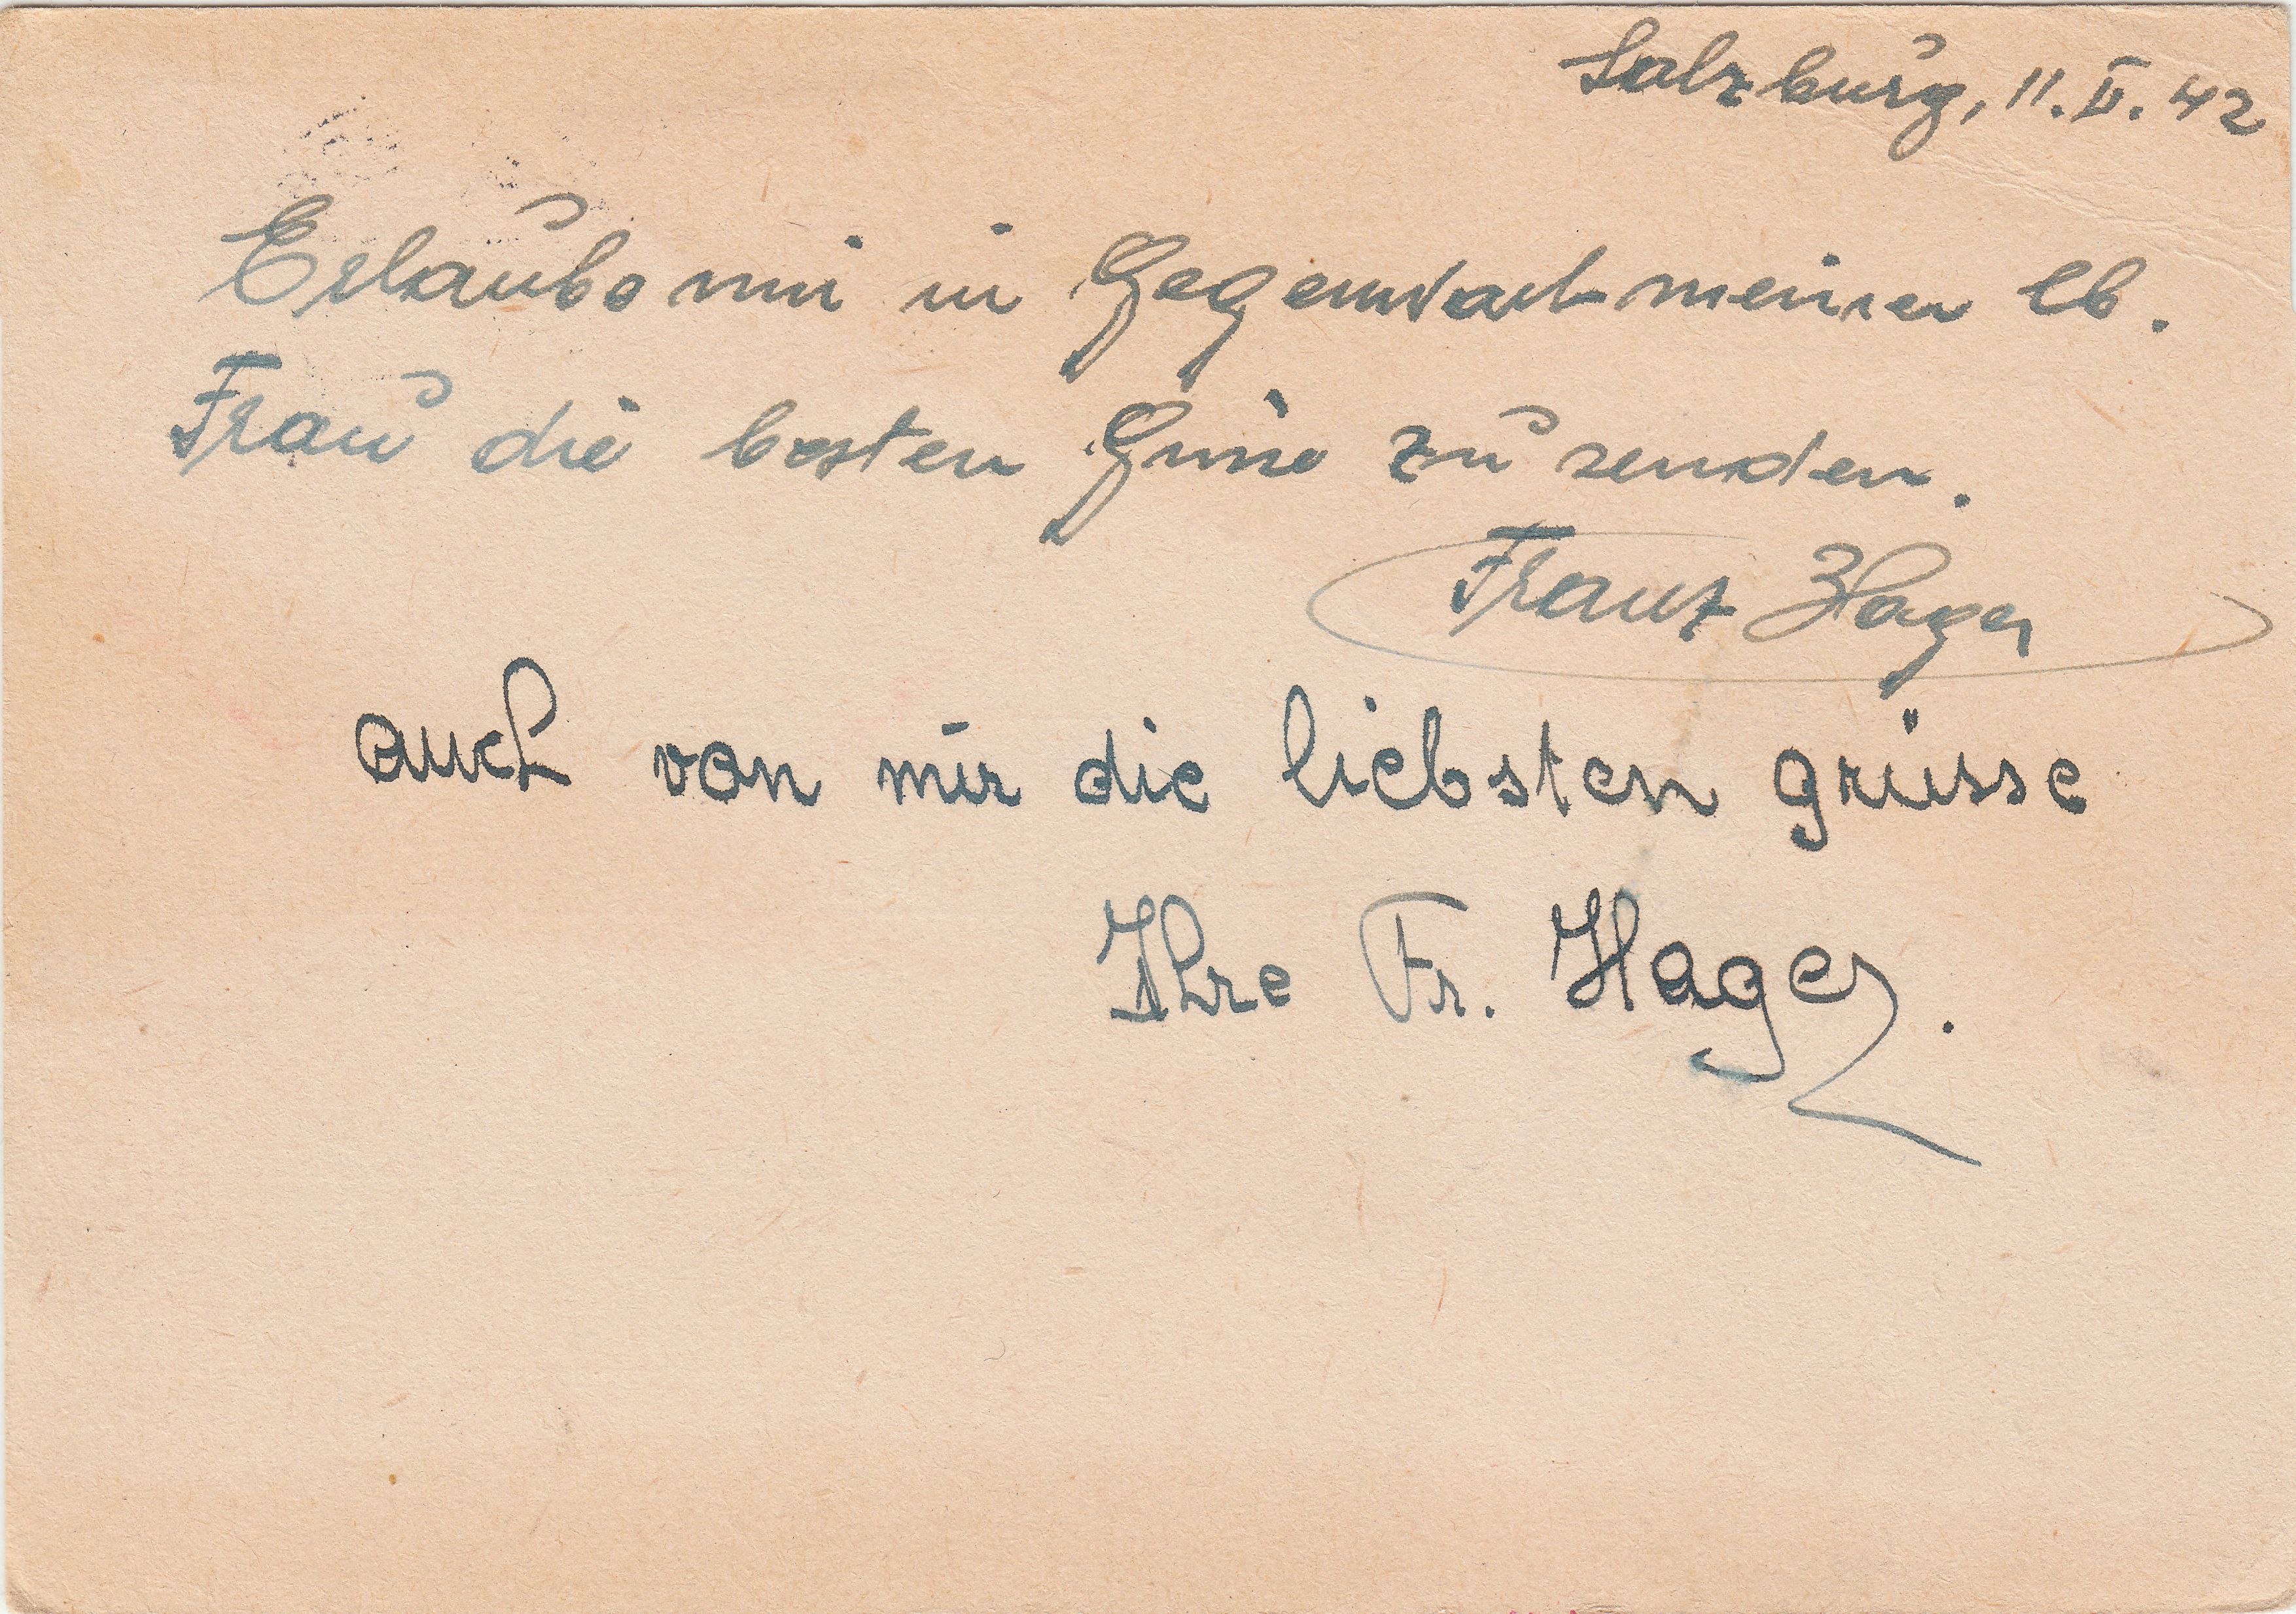 Salzburg, 11. II. 42
Erlaube mir in Gegenwart meiner lb.
Frau die besten Grüße zu senden.
Franz Hager
auch von mir die liebsten grüsse
Ihre Fr. Hager.